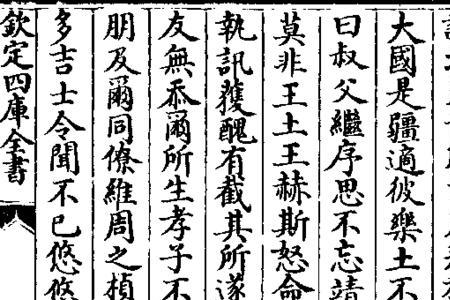 大國是疆適彼樂土不
曰叔父繼序思不忘靖
莫非王土王赫斯怒命
執訊獲醜有截其所遂
友無忝爾所生孝子不
朋及爾同僚維周之楨
多吉士令聞不已悠悠
欽定四庫全書